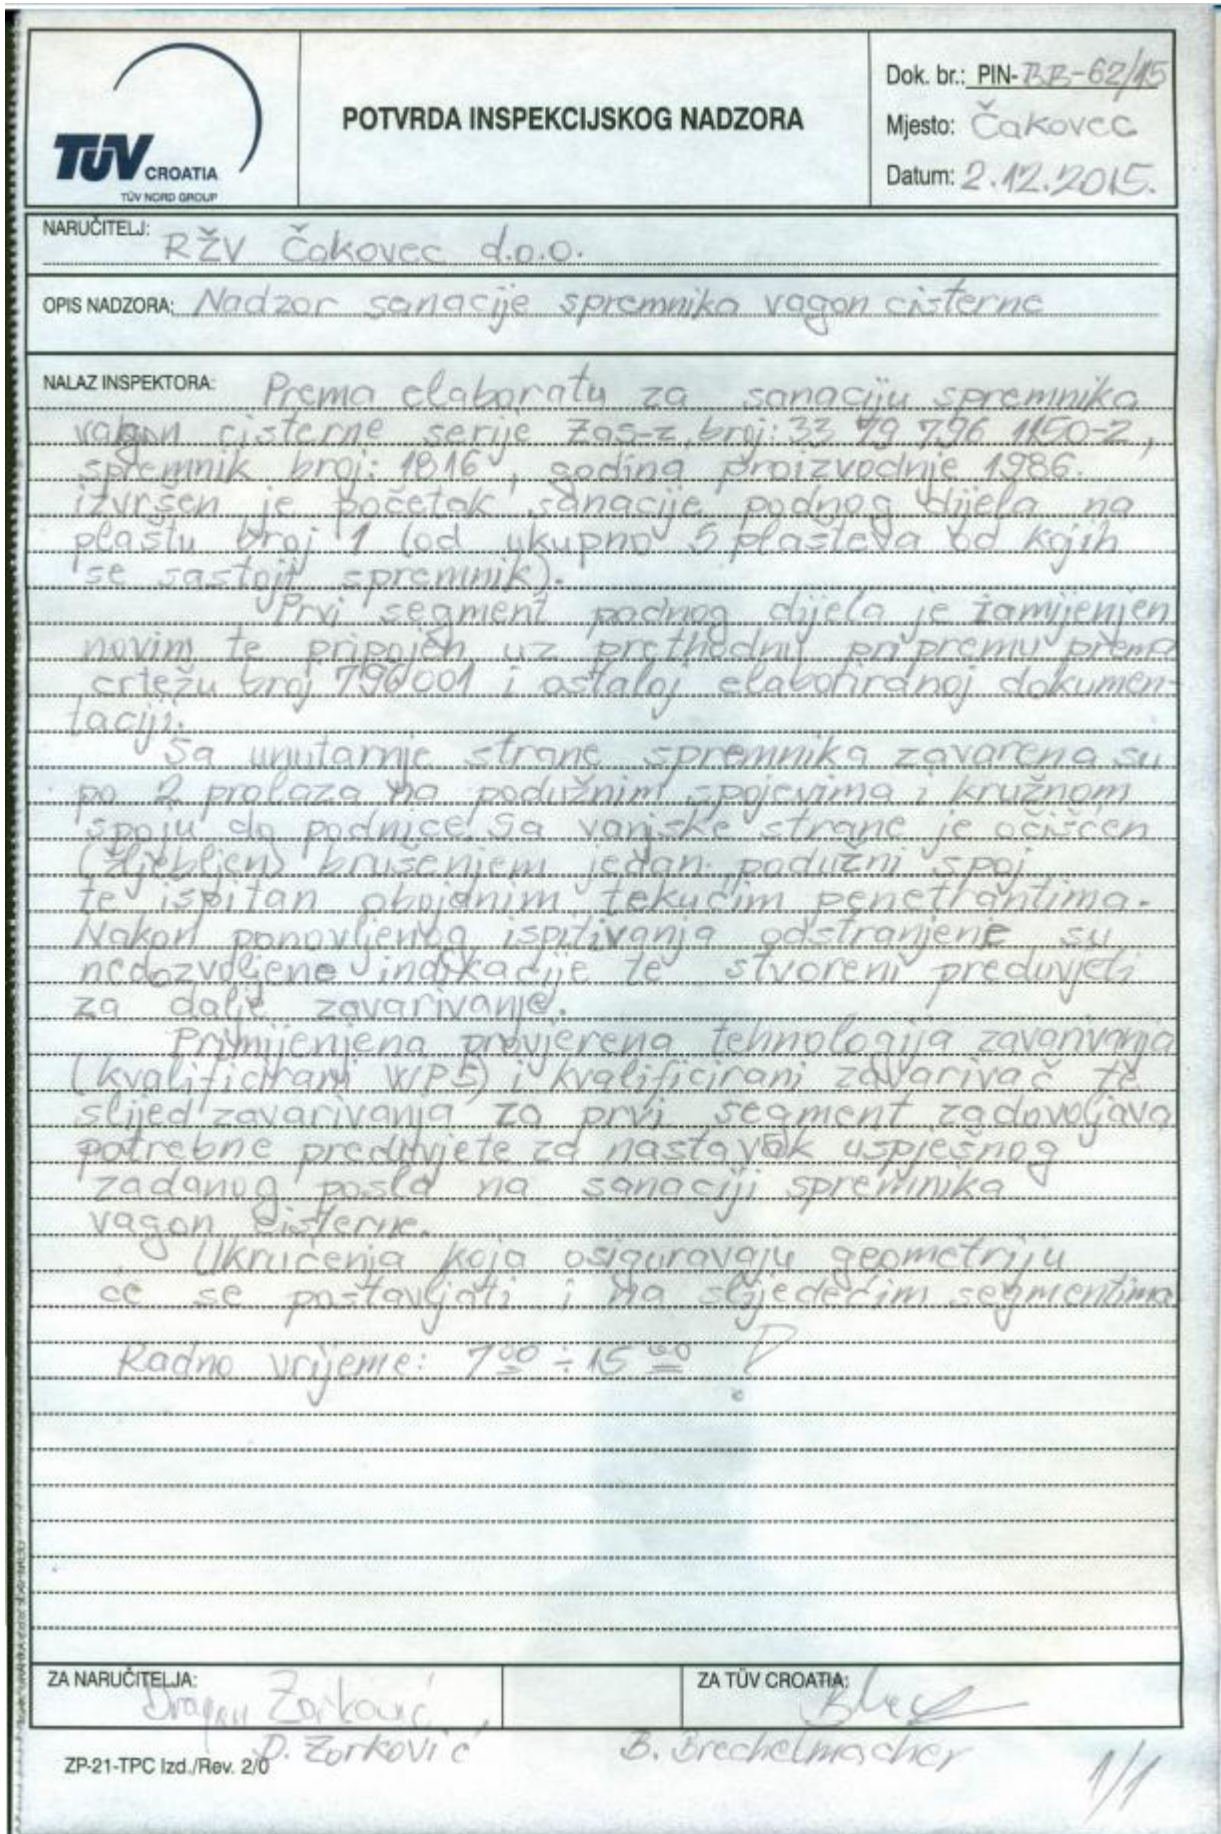 TÜV CROATIA
TÜV NORD GROUP
POTVRDA INSPEKCIJSKOG NADZORA
Dok. br.: PIN-BB-62/15
Mjesto: Čakovec
Datum: 2.12.2015.
NARUČITELJ: RŽV Čakovec d.o.o.
OPIS NADZORA: Nadzor sanacije spremnika vagon cisterne
NALAZ INSPEKTORA: Prema elaboratu za sanaciju spremnika
vagon cisterne serije Zas-z, broj: 33 79 796 1150-2,
spremnik broj: 1816, godina proizvodnje 1986.
izvršen je početak sanacije podnog dijela na
plaštu broj 1 (od ukupno 5 plašteva od kojih
se sastoji spremnik).
Prvi segment podnog dijela je zamijenjen
novim te pripojen uz prethodnu pripremu prema
crtežu broj 796001 i ostaloj elaboriranoj dokumen-
taciji.
Sa unutarnje strane spremnika zavarena su
po 2 prolaza na podužnim spojevima i kružnom
spoju do podnice. Sa vanjske strane je očišćen
(žljebljen) brušenjem jedan podužni spoj
te ispitan obojenim tekućim penetrantima.
Nakon ponovljenog ispitivanja odstranjene su
nedozvoljene indikacije te stvoreni preduvjeti
za dalje zavarivanje.
Primijenjena provjerena tehnologija zavarivanja
(kvalificirani WPS) i kvalificirani zavarivač te
slijed zavarivanja za prvi segment zadovoljava
potrebne preduvjete za nastavak uspješnog
zadanog posla na sanaciji spremnika
vagon cisterne.
Ukrućenja koja osiguravaju geometriju
će se postavljati i na slijedećim segmentima
Radno vrijeme: 7 00 ÷ 15 00
ZA NARUČITELJA: Dragan Zorković
ZA TÜV CROATIA:
D. Zorković
B. Brechelmacher
ZP-21-TPC Izd./Rev. 2/0
1/1